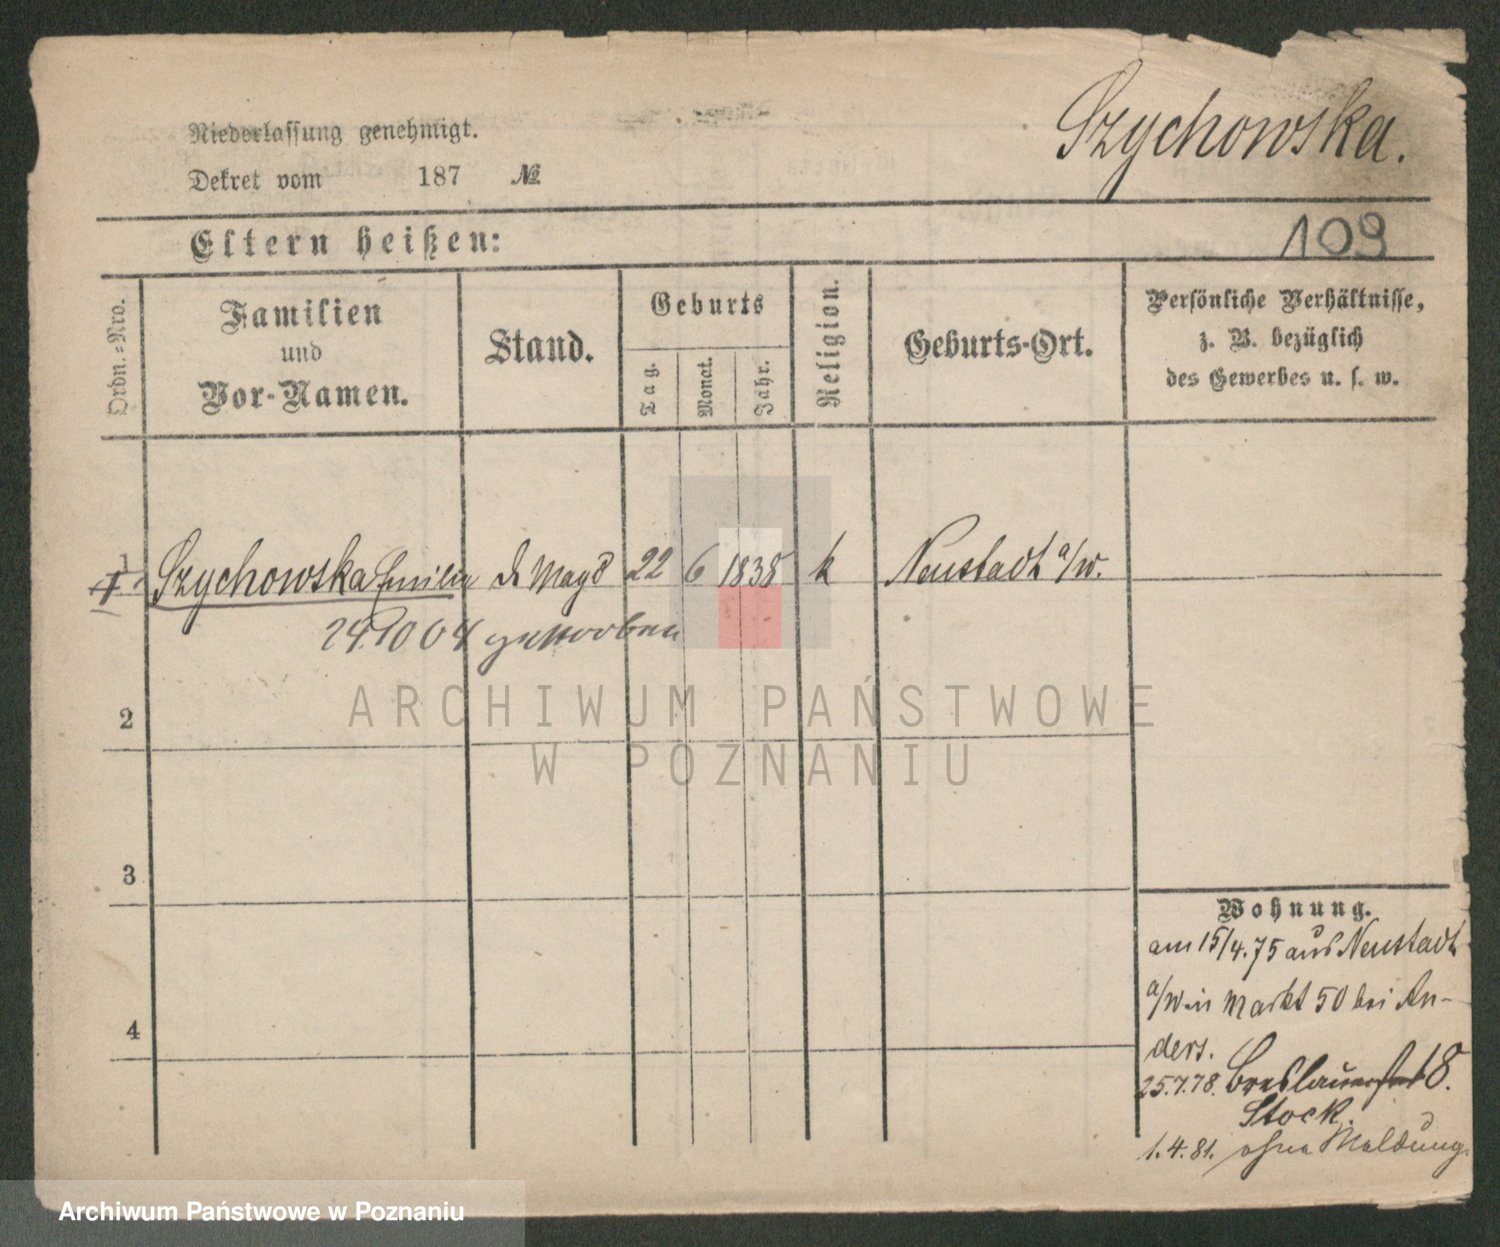 Szychowska.
Niederlassung genehmigt.
Dekret vom 187 №
109
Eltern heißen:
Ordn.-Nro.
Familien
und
Vor-Namen.
Stand.
Geburts
Tag.
Monat.
Jahr.
Religion.
Geburts-Ort.
Persönliche Verhältnisse,
z. B. bezüglich
des Gewerbes u. s. w.
1 Szychowska Emilie d. Magd 22 6 1838 k Neustadt a/w.
24 10 04 gestorben
2
3
4
Wohnung.
am 15/4.75 aus Neustadt
a/W in Markt 50 bei An-
ders.
25.7.78. Breslauerstr 18.
Stock.
1.4.81. ohne Meldung.
ARCHIWUM PAŃSTWOWE
W POZNANIU
Archiwum Państwowe w Poznaniu